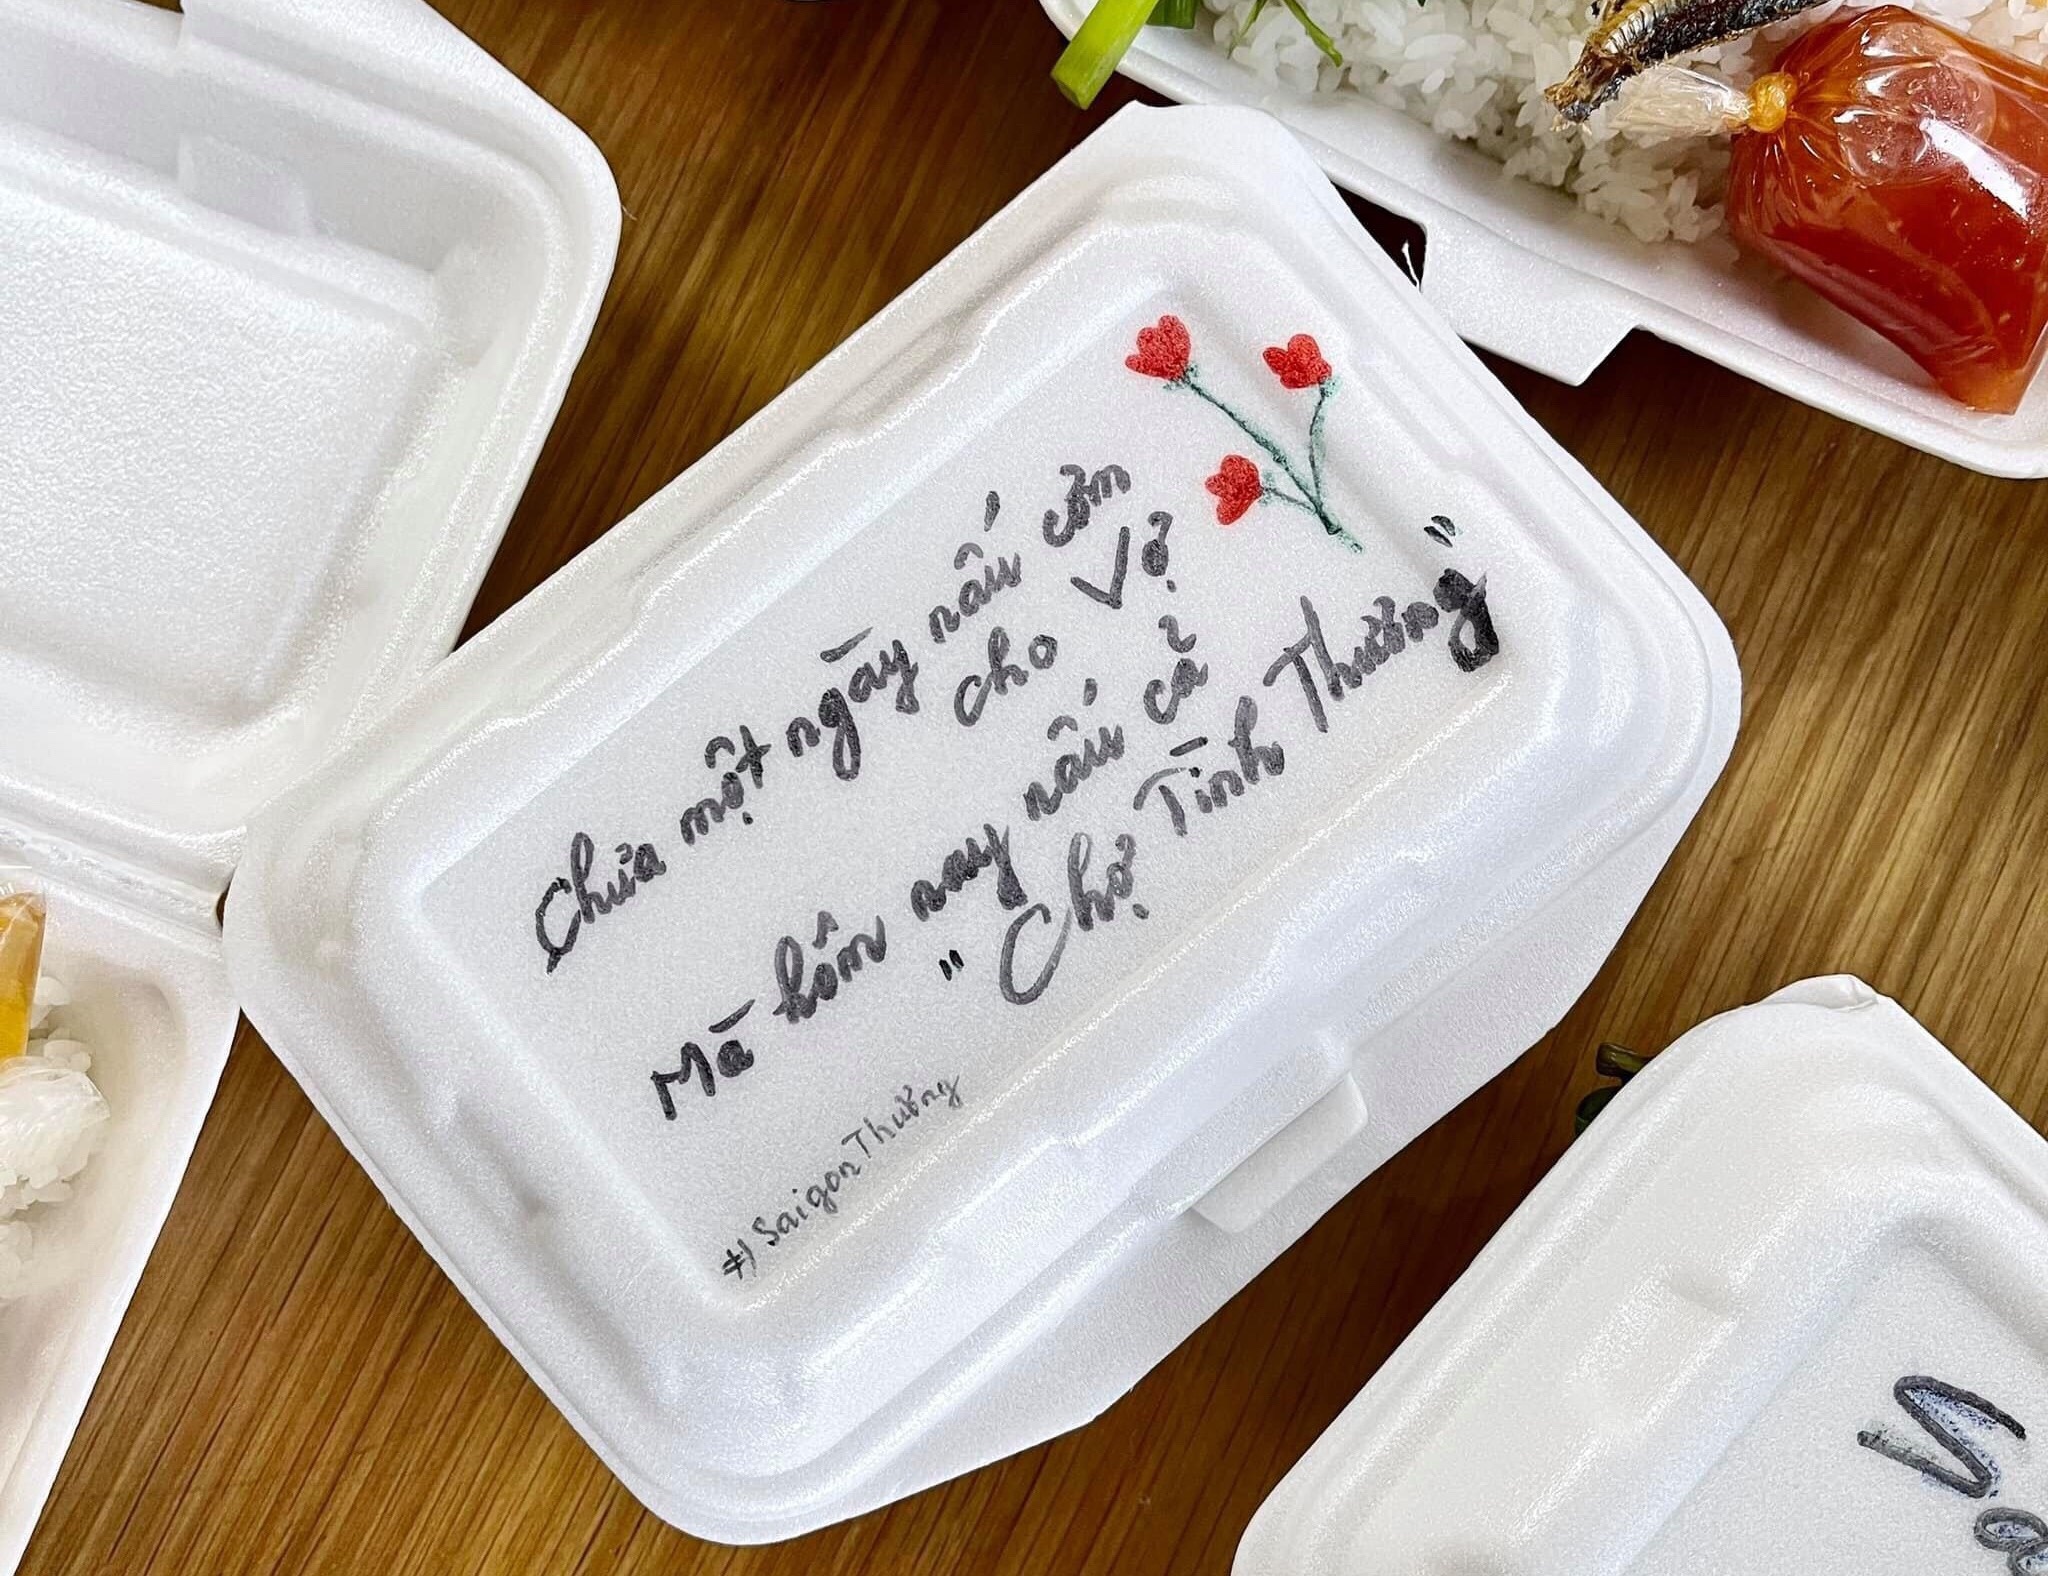 Chưa một ngày nấu cơm
cho Vợ
Mà hôm nay nấu cả
"Chợ Tình Thương"
#SaigonThương